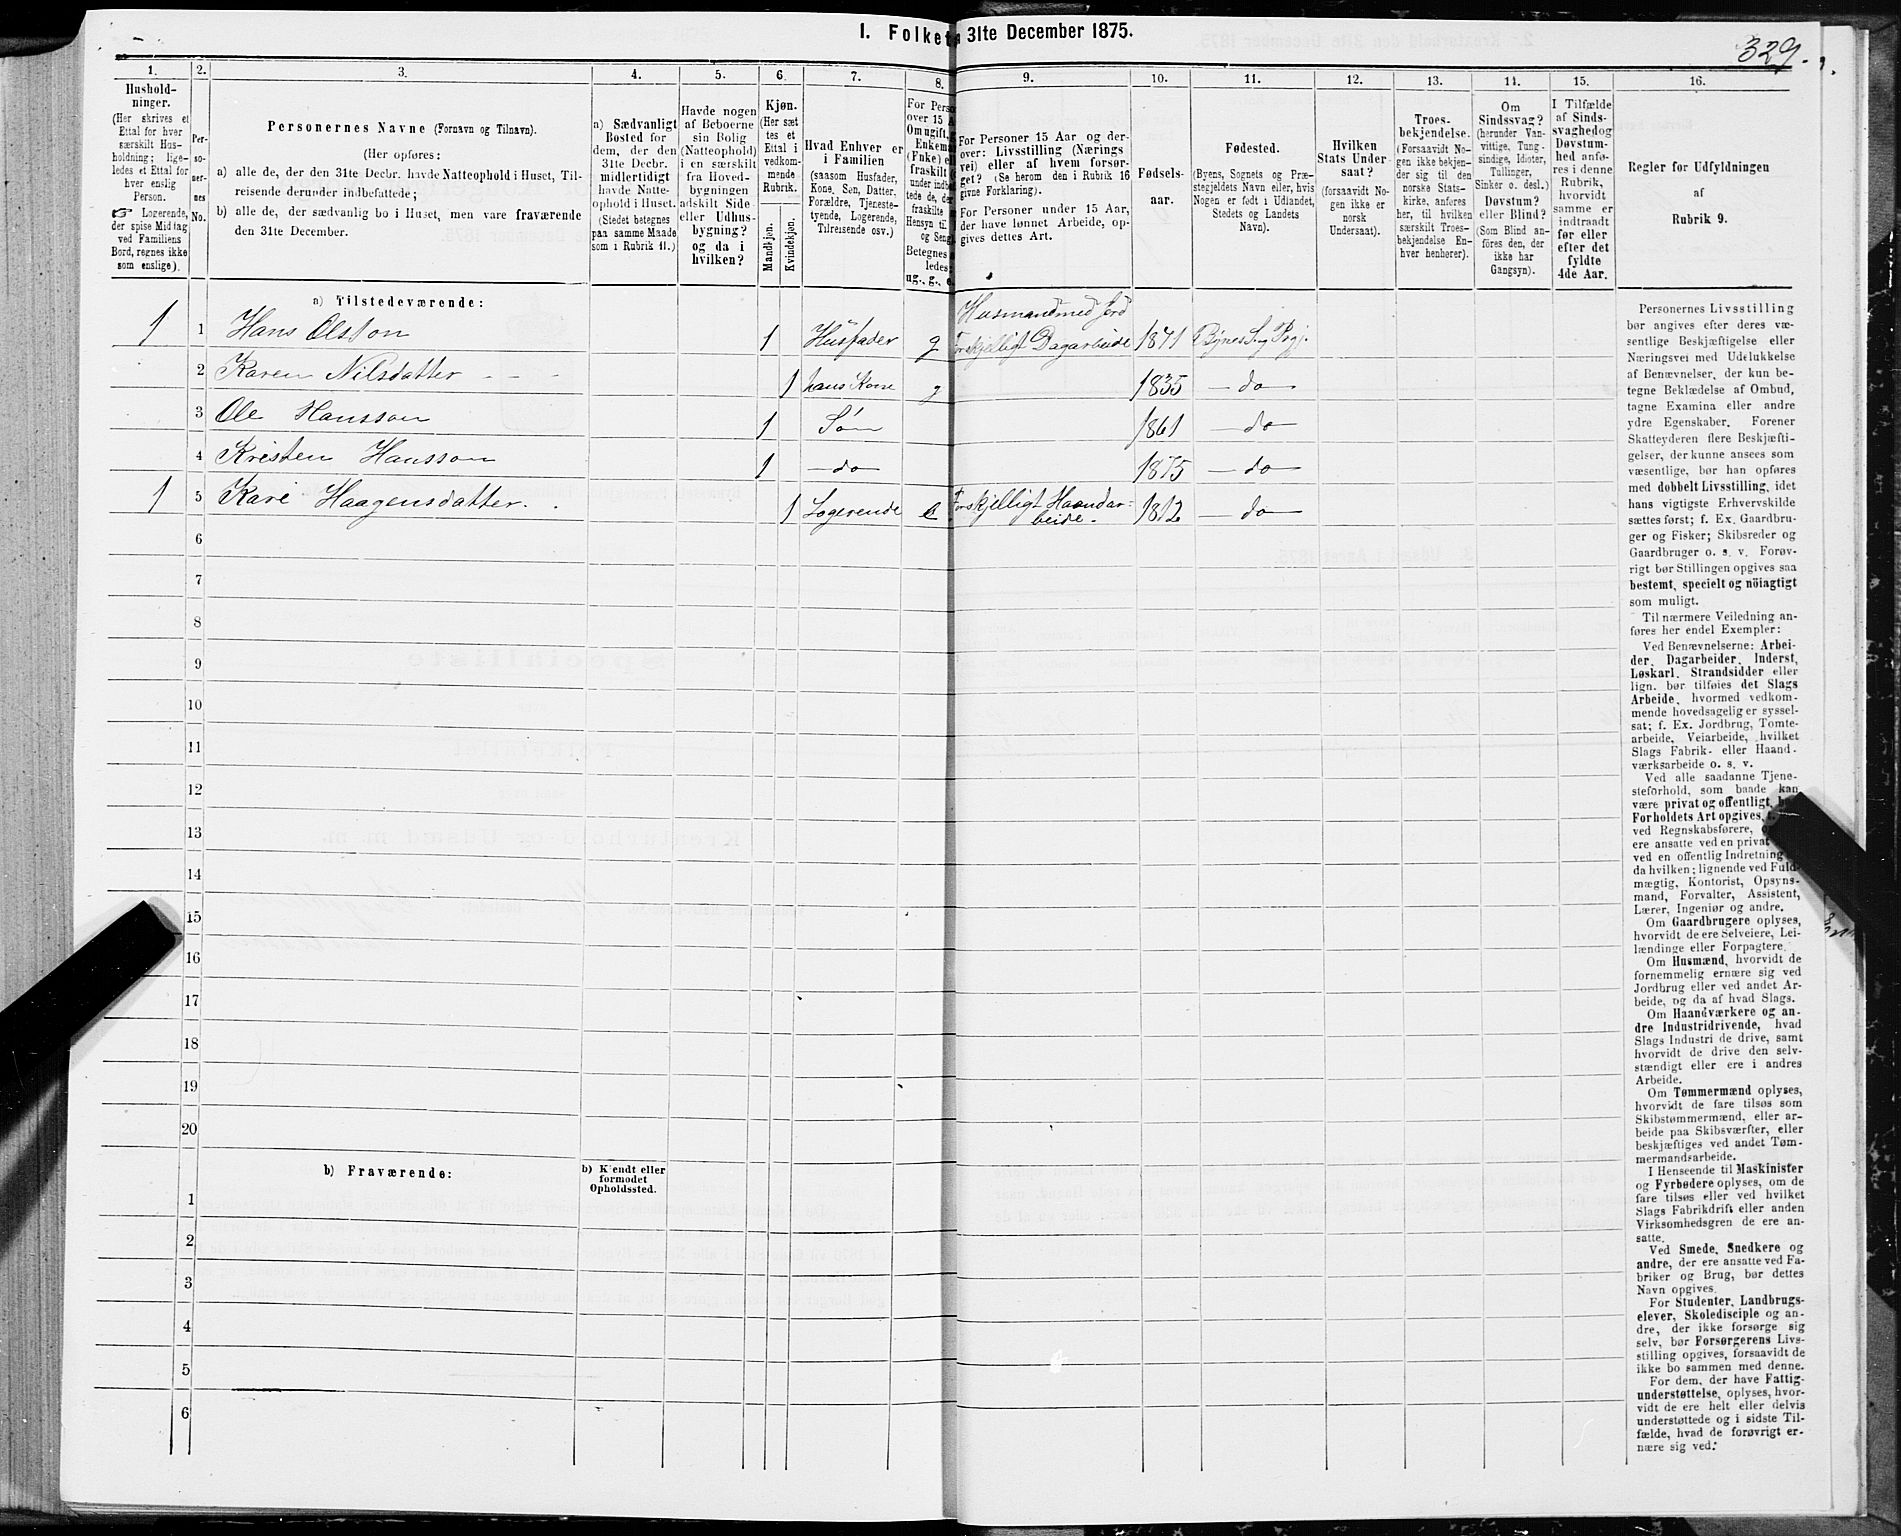 I. Folket 31te December 1875.
329.
1.
2.
3.
4.
5.
6.
7.
8.
9.
10.
11.
12.
13.
14.
15.
16.
Hushold-
ninger.
(Her skrives et
Ettal for hver
særskilt Hus-
holdning; lige-
ledes et Ettal for
hver enslig
Person.
☞ Logerende,
der spise Middag
ved Familiens
Bord, regnes ikke
som enslige).
Per-
so-
ner-
nes
No.
Personernes Navne (Fornavn og Tilnavn).
(Her opføres:
a) alle de, der den 31te Decbr. havde Natteophold i Huset, Til-
reisende derunder indbefattede;
b) alle de, der sædvanlig bo i Huset, men vare fraværende
den 31te December.
a) Sædvanligt
Bosted for
dem, der den
31te Decbr.
midlertidigt
havde Natte-
ophold i Huset.
(Stedet betegnes
paa samme Maade
som i Rubrik 11.)
Havde nogen
af Beboerne
sin Bolig
(Natteophold)
i en særskilt
fra Hoved-
bygningen
adskilt Side-
eller Udhus-
bygning?
og da i
hvilken?
Kjøn.
(Her sæt
tes et
Ettal i
vedkom-
mende
Rubrik.
Mandkjøn.
Kvindekjøn.
Hvad Enhver er
i Familien
(saasom Husfader,
Kone, Søn, Datter,
Forældre, Tjeneste-
tyende, Logerende,
Tilreisende osv.)
For Perso
over 15 A
Om ugift,
Enkema
(Enke) e
fraskilt
under indb
tede de, der
fraskilte
Hensyn til
og Seng
Betegnes
ledes:
ug., g., e.
For Personer 15 Aar og der-
over: Livsstilling (Nærings
vei) eller af hvem forsør-
get? (Se herom den i Rubrik 16
givne Forklaring).
For Personer under 15 Aar,
der have lønnet Arbeide, op-
gives dettes Art.
Fødsels-
aar.
Fødested.
(Byens, Sognets og Præ-
stegjeldets Navn eller, hvis
Nogen er født i Udlandet,
Stedets og Landets
Navn).
Hvilken
Stats Under-
saat?
(forsaavidt No-
gen ikke er
norsk
Undersaat).
Troes-
bekjendelse.
(Forsaavidt No-
gen ikke bekjen-
der sig til den
norske Stats-
kirke, anføres
her, til hvilken
særskilt Troes-
bekjendelse En-
hver henhører).
Om
Sindssvag?
(herunder Van-
vittige, Tung-
sindige, Idioter,
Tullinger,
Sinker o. desl.)
Døvstum?
eller Blind?
(Som Blind an-
føres den, der
ikke har
Gangsyn).
I Tilfælde
af Sinds-
svaghed og
Døvstum-
hed anfø-
res i denne
Rubrik,
hvorvidt
samme er
indtraadt
før eller
efter det
fyldte
4de Aar.
Regler for Udfyldningen
af
Rubrik 9.
a) Tilstedeværende:
1 1 Hans Olsson 1 Husfader g Husmand med Jord
Forskjelligt Dagarbeide 1841 Bynes S. og Prgj.
2 Karen Nilsdatter - - - 1 hans Kone g 1835 - do -
3 Ole Hansson 1 Søn 1861 - do -
4 Kristen Hansson 1 - do - 1875 - do -
1 5 Kari Haagensdatter. 1 Logerende e Forskjelligt Haandar-
beide. 1812 - do -
6
7
8
9
10
11
12
13
14
15
16
17
18
19
20
b) Fraværende:
b) Kjendt eller
formodet
Opholdssted.
1
2
3
4
5
6
Personernes Livsstilling
bør angives efter deres væ-
sentlige Beskjæftigelse eller
Næringsvei med Udelukkelse
af Benævnelser, der kun be-
tegne Beklædelse af Ombud,
tagne Examina eller andre
ydre Egenskaber. Forener
Skatteyderen flere Beskjæfti-
gelser, der kunne ansees som
væsentlige, bør han opføres
med dobbelt Livsstilling, idet
hans vigtigste Erhvervskilde
sættes først; f. Ex. Gaardbru-
ger og Fisker; Skibsreder og
Gaardbruger o. s. v. Forøv-
rigt bør Stillingen opgives saa
bestemt, specielt og nöiagtigt
som muligt.
Til nærmere Veiledning an-
føres her endel Exempler:
Ved Benævnelserne: Arbei-
der, Dagarbeider, Inderst,
Løskarl, Strandsidder eller
lign. bør tilføies det Slags
Arbeide, hvormed vedkom-
mende hovedsagelig er syssel-
sat; f. Ex. Jordbrug, Tomte-
arbeide, Veiarbeide, hvilket
Slags Fabrik- eller Haand-
værksarbeide o. s. v.
Ved alle saadanne Tjene-
steforhold, som baade kan
være privat og offentligt,
Forholdets Art opgives,
ved Regnskabsførere,
ere ansatte ved en privat
ved en offentlig Indretning
da hvilken; lignende ved Fuld-
mægtig, Kontorist, Opsyns-
mand, Forvalter, Assistent,
Lærer, Ingeniør og andre.
Om Gaardbrugere oplyses,
hvorvidt de ere Selveiere, Lei-
lændinge eller Forpagtere.
Om Husmænd, hvorvidt de
fornemmelig ernære sig ved
Jordbrug eller ved andet Ar-
beide, og da af hvad Slags.
Om Haandværkere og an-
dre Industridrivende, hvad
Slags Industri de drive, samt
hvorvidt de drive den selv-
stændigt eller ere i andres
Arbeide.
Om Tømmermænd oplyses,
hvorvidt de fare tilsøs som
Skibstømmermænd, eller ar-
beide paa Skibsværfter, eller
beskjæftiges ved andet Tøm-
mermandsarbeide.
I Henseende til Maskinister
og Fyrbødere oplyses, om de
fare tilsøs eller ved hvilket
Slags Fabrikdrift eller anden
Virksomhedsgren de ere an-
satte.
Ved Smede, Snedkere og
andre, der ere ansatte ved Fa-
briker og Brug, bør dettes
Navn opgives.
For Studenter, Landbrugs-
elever, Skoledisciple og an-
dre, der ikke forsørge sig
selv, bør Forsørgerens Livs-
stilling opgives, forsaavidt de
ikke bo sammen med denne.
For dem, der have Fattig-
understøttelse, oplyses, hvor-
vidt de ere helt eller delvis
understøttede og i sidste Til-
fælde, hvad de forøvrigt er-
nære sig ved.